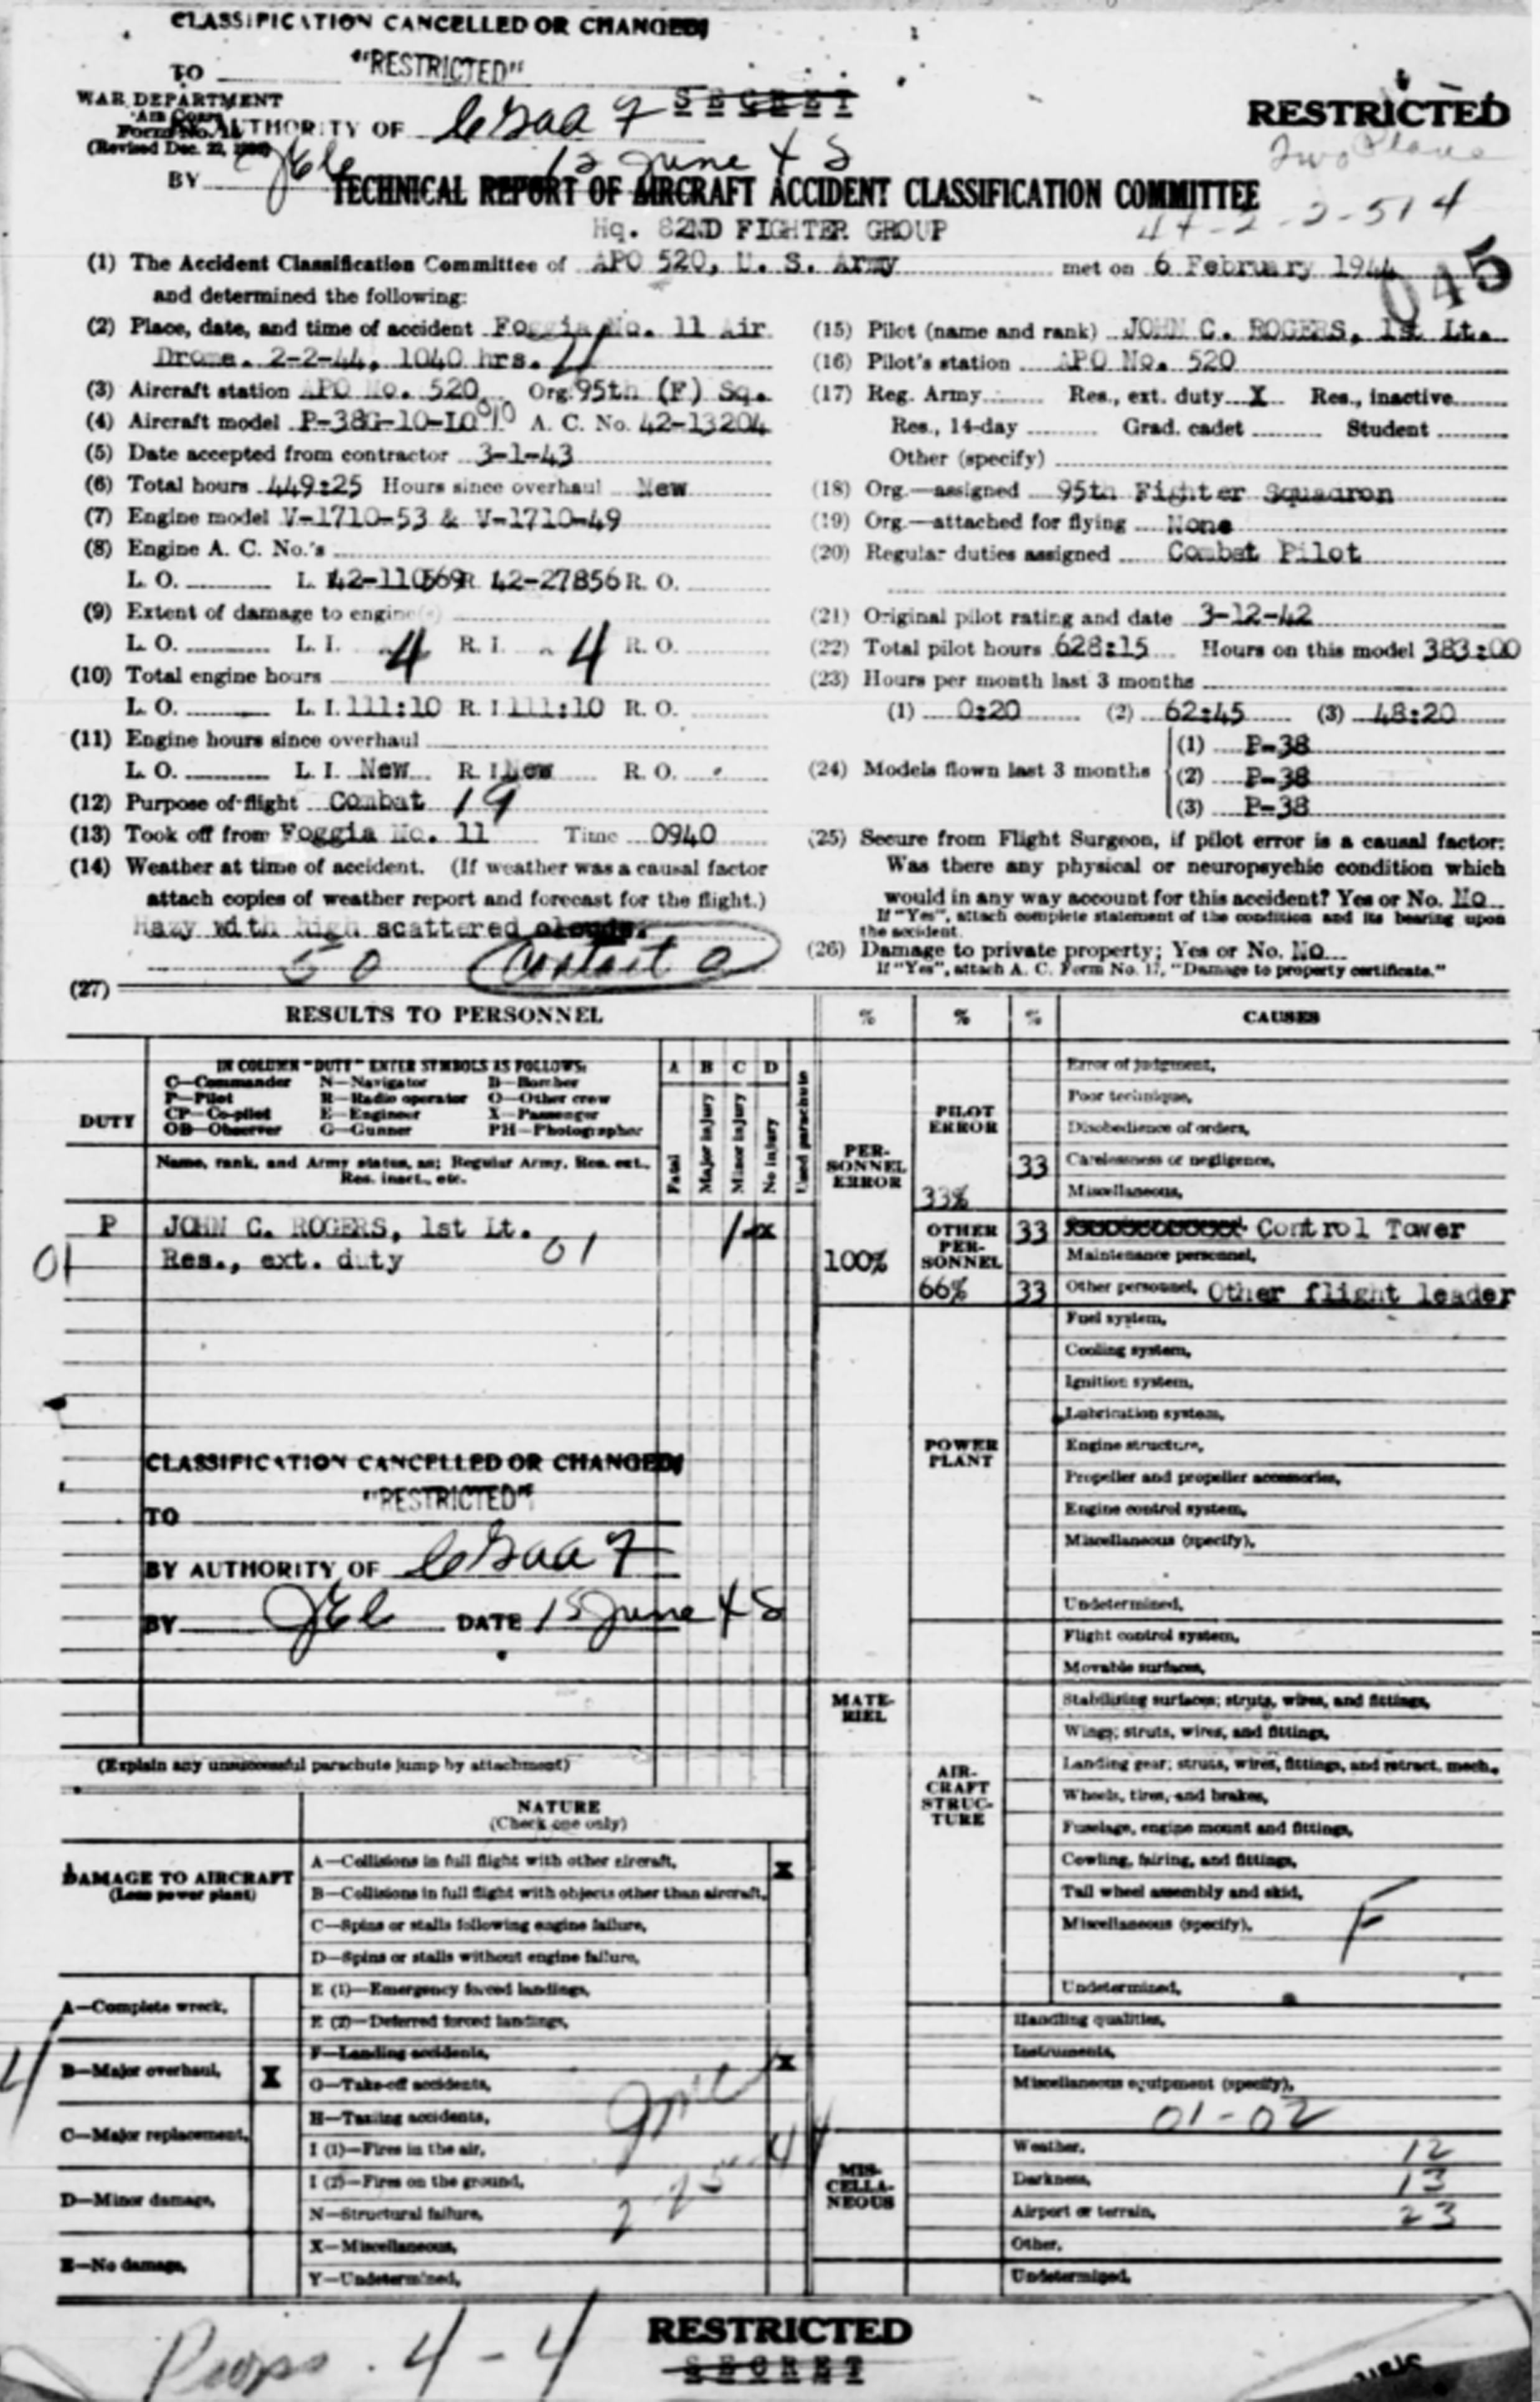 CLASSIFICATION CANCELLED OR CHANGED
TO "RESTRICTED"
SECRET
WAR DEPARTMENT
Air Corps
Form No. 14
(Revised Dec. 22, )
RESTRICTED
BY AUTHORITY OF
Two Plane
BY
13 June 45
TECHNICAL REPORT OF AIRCRAFT ACCIDENT CLASSIFICATION COMMITTEE
44-2-2-514
Hq. 82ND FIGHTER GROUP
045
(1) The Accident Classification Committee of APO 520, U. S. Army met on 6 February 1944
and determined the following:
(2) Place, date, and time of accident Foggia No. 11 Air
Drome. 2-2-44, 1040 hrs.
(3) Aircraft station APO No. 520 Org. 95th (F) Sq.
(4) Aircraft model P-38G-10-LO A. C. No. 42-13204
(5) Date accepted from contractor 3-1-43
(6) Total hours 449:25 Hours since overhaul New
(7) Engine model V-1710-53 & V-1710-49
(8) Engine A. C. No.'s
L. O. L. 42-110569 R. 42-27856 R. O.
(9) Extent of damage to engine(s)
L. O. L. I. 4 R. I. 4 R. O.
(10) Total engine hours
L. O. L. I. 111:10 R. I. 111:10 R. O.
(11) Engine hours since overhaul
L. O. L. I. New R. I. New R. O.
(12) Purpose of flight Combat 19
(13) Took off from Foggia No. 11 Time 0940
(14) Weather at time of accident. (If weather was a causal factor
attach copies of weather report and forecast for the flight.)
Hazy with high scattered clouds.
50 Contact
(15) Pilot (name and rank) JOHN C. ROGERS, 1st Lt.
(16) Pilot's station APO No. 520
(17) Reg. Army Res., ext. duty X Res., inactive
Res., 14-day Grad. cadet Student
Other (specify)
(18) Org.—assigned 95th Fighter Squadron
(19) Org.—attached for flying None
(20) Regular duties assigned Combat Pilot
(21) Original pilot rating and date 3-12-42
(22) Total pilot hours 628:15 Hours on this model 383:00
(23) Hours per month last 3 months
(1) 0:20 (2) 62:45 (3) 48:20
(24) Models flown last 3 months
(1) P-38
(2) P-38
(3) P-38
(25) Secure from Flight Surgeon, if pilot error is a causal factor:
Was there any physical or neuropsychic condition which
would in any way account for this accident? Yes or No. No
If "Yes", attach complete statement of the condition and its bearing upon
the accident.
(26) Damage to private property; Yes or No. No
If "Yes", attach A. C. Form No. 17, "Damage to property certificate."
(27)
RESULTS TO PERSONNEL
DUTY
IN COLUMN "DUTY" ENTER SYMBOLS AS FOLLOWS:
C—Commander N—Navigator B—Bomber
P—Pilot R—Radio operator O—Other crew
CP—Co-pilot E—Engineer X—Passenger
OB—Observer G—Gunner PH—Photographer
Name, rank, and Army status, as; Regular Army, Res. ext.,
Res. inact., etc.
A B C D
Fatal
Major injury
Minor injury
No injury
Used parachute
P JOHN C. ROGERS, 1st Lt. x
01 Res., ext. duty 01
CLASSIFICATION CANCELLED OR CHANGED
"RESTRICTED"
TO
BY AUTHORITY OF
BY DATE 15 June 45
(Explain any unsuccessful parachute jump by attachment)
DAMAGE TO AIRCRAFT
(Less power plant)
A—Complete wreck,
4
B—Major overhaul, X
C—Major replacement,
D—Minor damage,
E—No damage,
NATURE
(Check one only)
A—Collisions in full flight with other aircraft, X
B—Collisions in full flight with objects other than aircraft,
C—Spins or stalls following engine failure,
D—Spins or stalls without engine failure,
E (1)—Emergency forced landings,
E (2)—Deferred forced landings,
F—Landing accidents, X
G—Take-off accidents,
H—Taxiing accidents,
I (1)—Fires in the air,
I (2)—Fires on the ground,
N—Structural failure,
X—Miscellaneous,
Y—Undetermined,
% % % CAUSES
PERSONNEL ERROR
100%
PILOT ERROR
33%
Error of judgment,
Poor technique,
Disobedience of orders,
33 Carelessness or negligence,
Miscellaneous,
OTHER PERSONNEL
66%
33 Control Tower
Maintenance personnel,
33 Other personnel, Other flight leader
MATERIEL
POWER PLANT
Fuel system,
Cooling system,
Ignition system,
Lubrication system,
Engine structure,
Propeller and propeller accessories,
Engine control system,
Miscellaneous (specify),
Undetermined,
AIRCRAFT STRUCTURE
Flight control system,
Movable surfaces,
Stabilizing surfaces; struts, wires, and fittings,
Wings; struts, wires, and fittings,
Landing gear; struts, wires, fittings, and retract. mech.,
Wheels, tires, and brakes,
Fuselage, engine mount and fittings,
Cowling, fairing, and fittings,
Tail wheel assembly and skid,
Miscellaneous (specify), F
Undetermined,
Handling qualities,
Instruments,
Miscellaneous equipment (specify),
01-02
MISCELLANEOUS
Weather, 12
Darkness, 13
Airport or terrain, 23
Other,
Undetermined,
Props. 4-4
RESTRICTED
SECRET